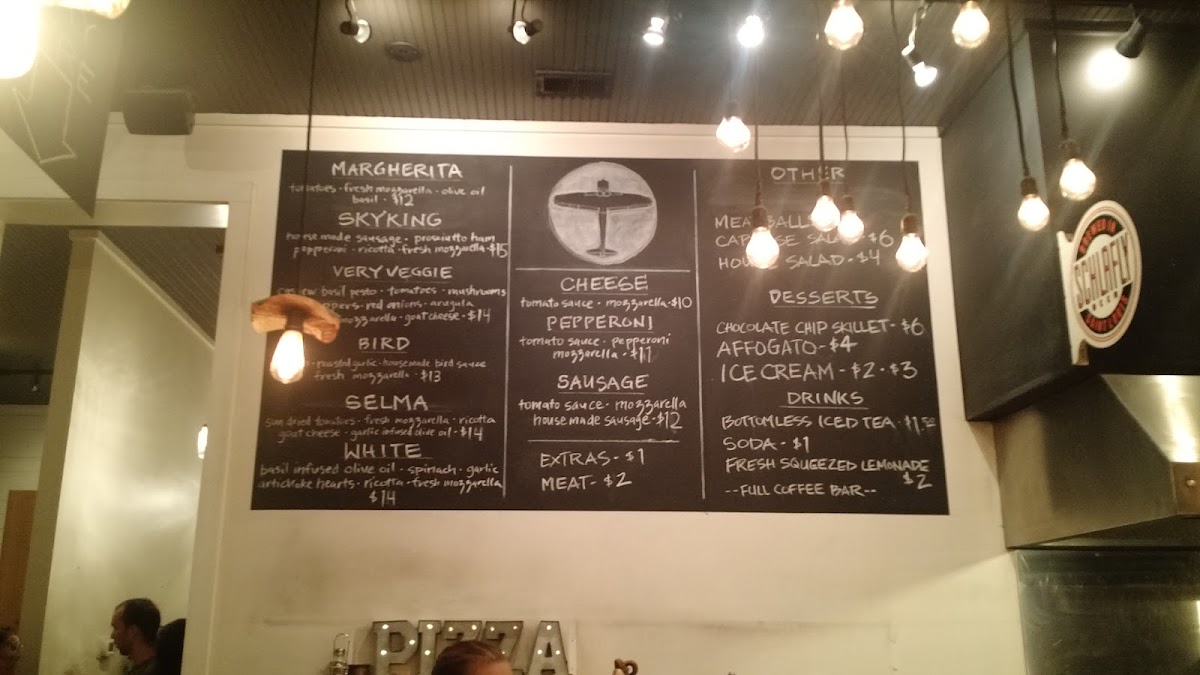 MARGHERITA
tomatoes · fresh mozzarella · olive oil
basil · $12
SKYKING
house made sausage · prosciutto ham
pepperoni · ricotta · fresh mozzarella · $15
VERY VEGGIE
basil pesto · tomatoes · mushrooms
red onions · arugula
mozzarella · goat cheese · $14
BIRD
roasted garlic · house made bird sauce
fresh mozzarella · $13
SELMA
sun dried tomatoes · fresh mozzarella · ricotta
goat cheese · garlic infused olive oil · $14
WHITE
basil infused olive oil · spinach · garlic
artichoke hearts · ricotta · fresh mozzarella
$14
CHEESE
tomato sauce · mozzarella · $10
PEPPERONI
tomato sauce · pepperoni
mozzarella · $11
SAUSAGE
tomato sauce · mozzarella
house made sausage · $12
EXTRAS - $1
MEAT - $2
OTHER
$6
HOUSE SALAD - $4
DESSERTS
CHOCOLATE CHIP SKILLET - $6
AFFOGATO - $4
ICE CREAM - $2 - $3
DRINKS
BOTTOMLESS ICED TEA - $1.50
SODA - $1
FRESH SQUEEZED LEMONADE
$2
--FULL COFFEE BAR--
BREWED IN
SCHLAFLY
BEER
SAINT LOUIS
PIZZA